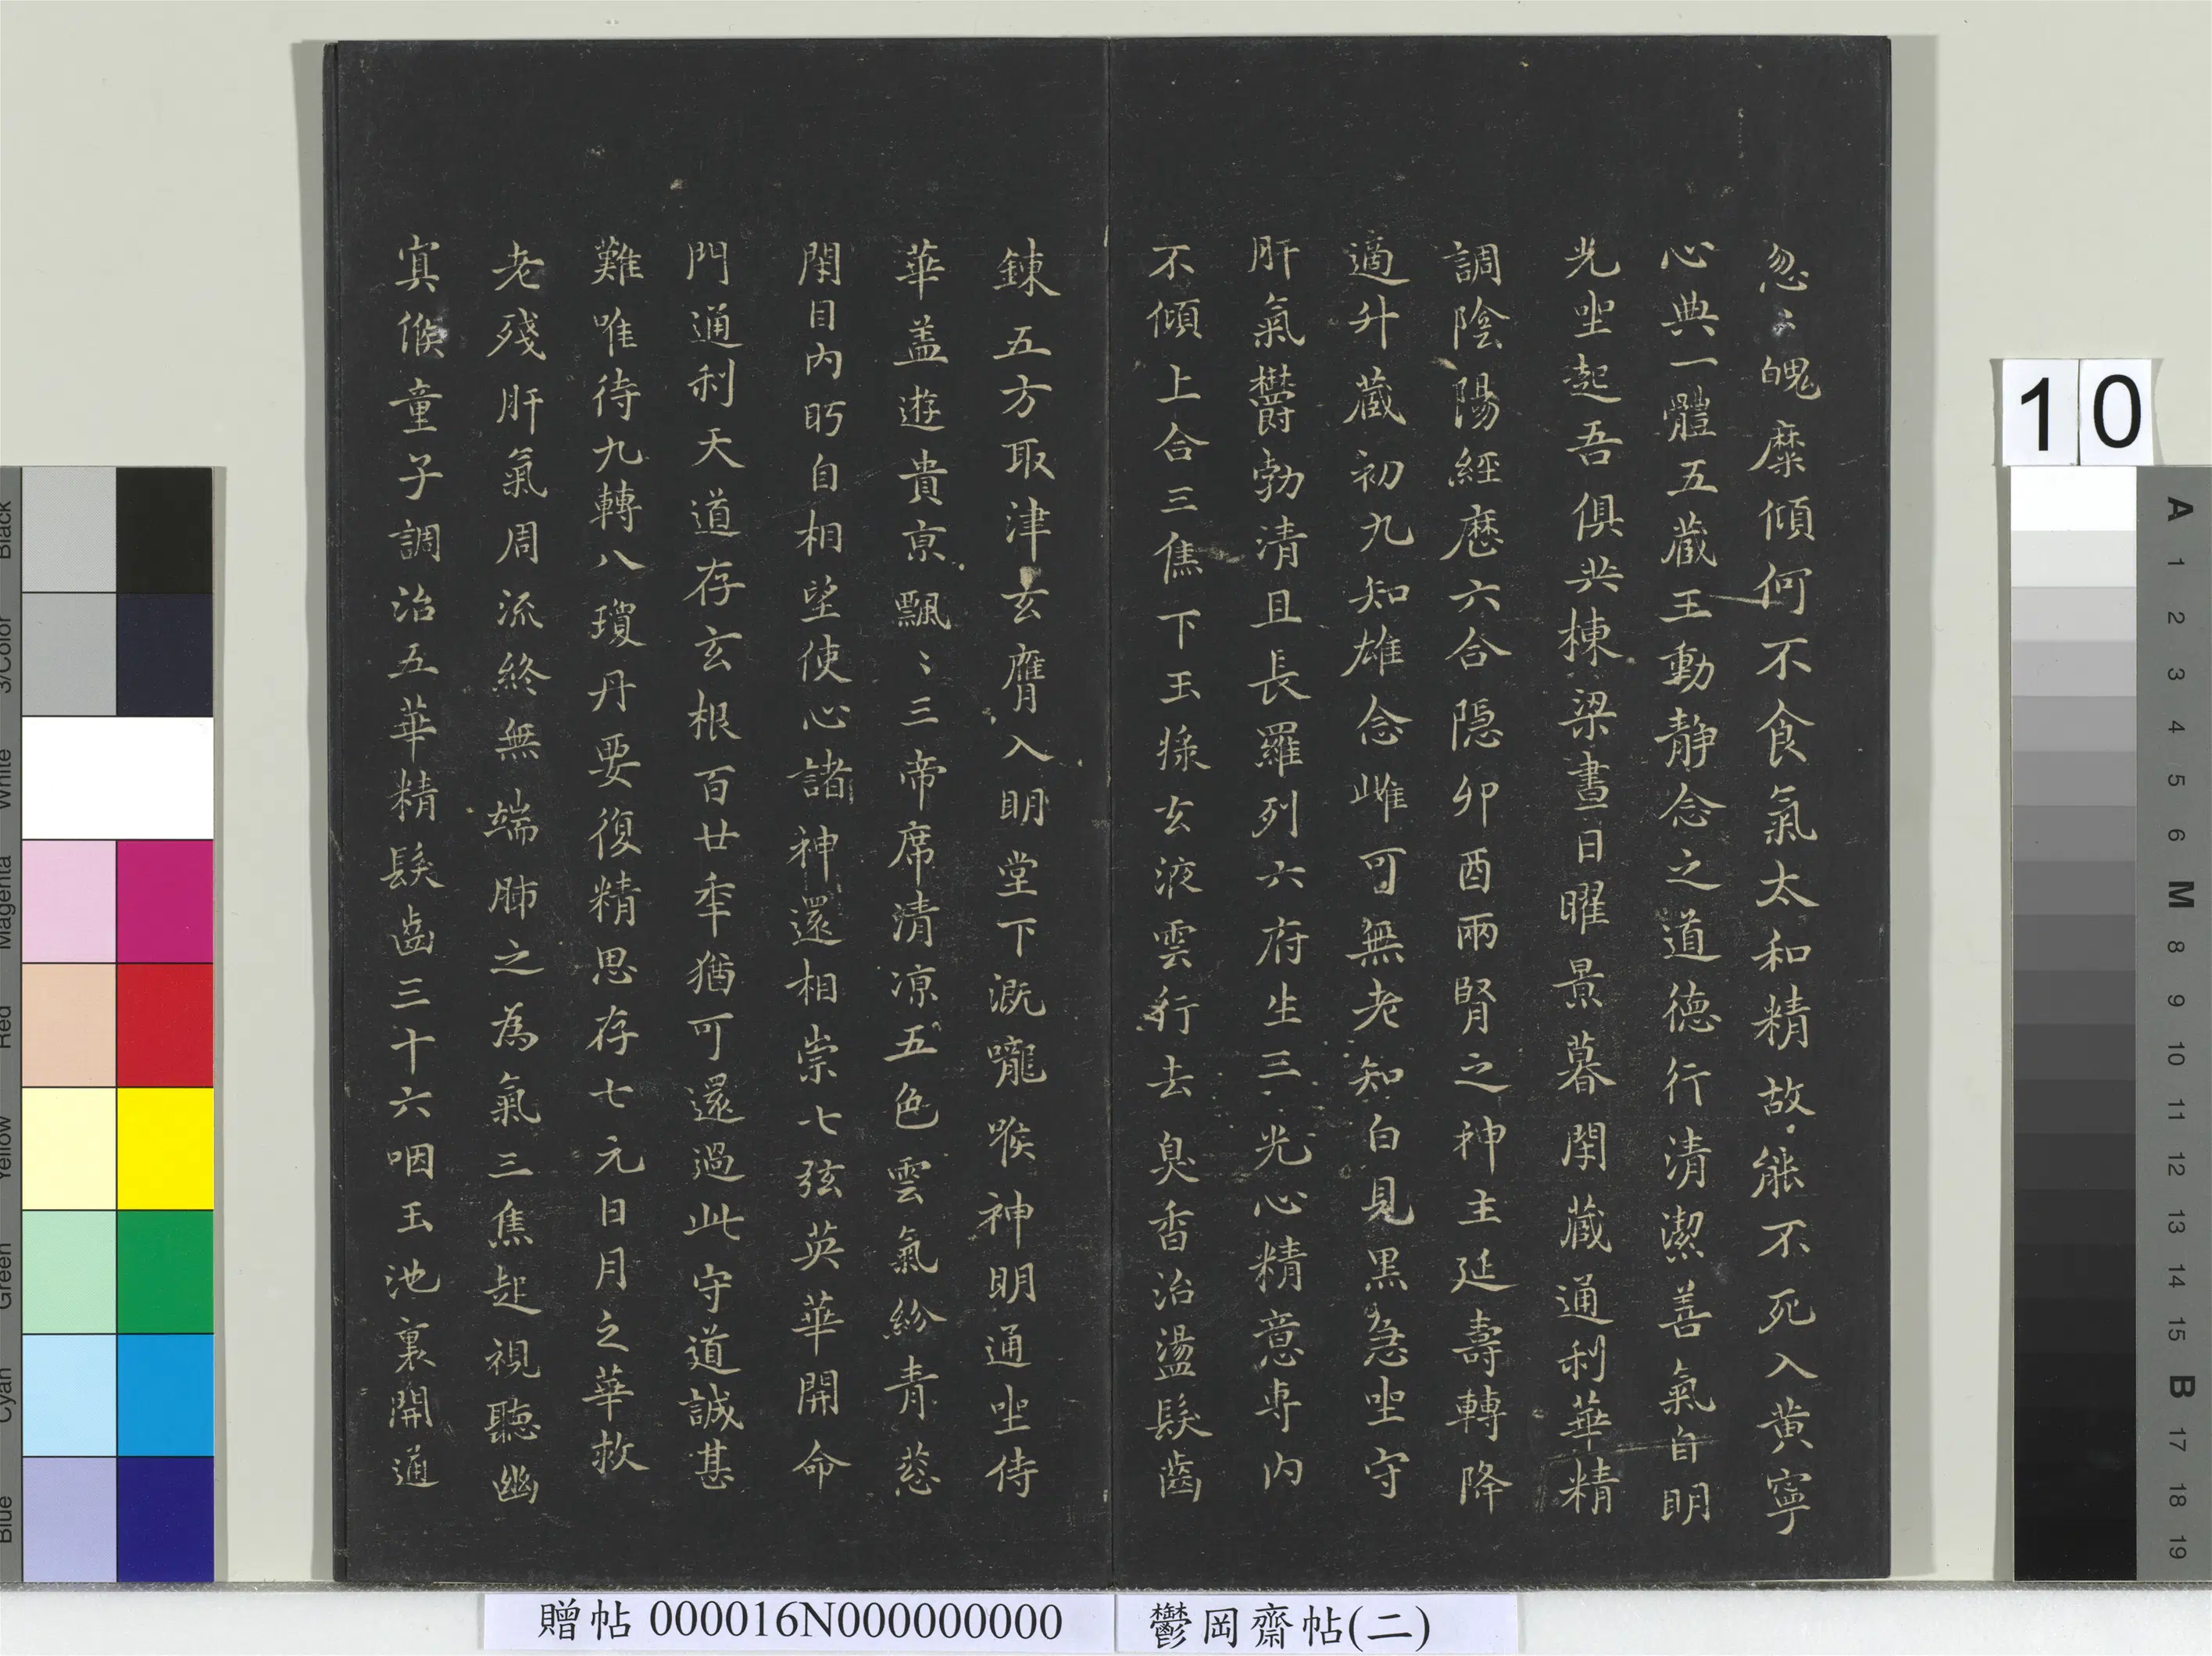 忽〻魄糜傾何不食氣太和精故能不死入黄寧
心典一體五藏王動静念之道德行清潔善氣自明
光坐起吾俱共棟梁晝日曜景暮閉藏通利華精
調陰陽經歷六合隱卯酉兩腎之神主延壽轉降
適升藏初九知雄念雌可無老知白見黑急坐守
肝氣欝勃清且長羅列六府生三光心精意專内
不傾上合三焦下玉漿玄液雲行去臭香治盪髮齒
鍊五方取津玄膺入明堂下溉嚨喉神明通坐侍
華盖遊貴京飄〻三帝席清凉五色雲氣紛青葱
閉目内眄自相望使心諸神還相崇七弦英華開命
門通利天道存玄根百廿年猶可還過此守道誠甚
難唯待九轉八瓊丹要復精思存七元日月之華救
老殘肝氣周流終無端肺之為氣三焦起視聽幽
寘候童子調治五華精髮齒三十六咽玉池裏開通
10
贈帖 000016N000000000
鬱岡齋帖(二)
Black
3/Color
White
Magenta
Red
Yellow
Green
Cyan
Blue
A
1
2
3
4
5
6
M
8
9
10
11
12
13
14
15
B
17
18
19